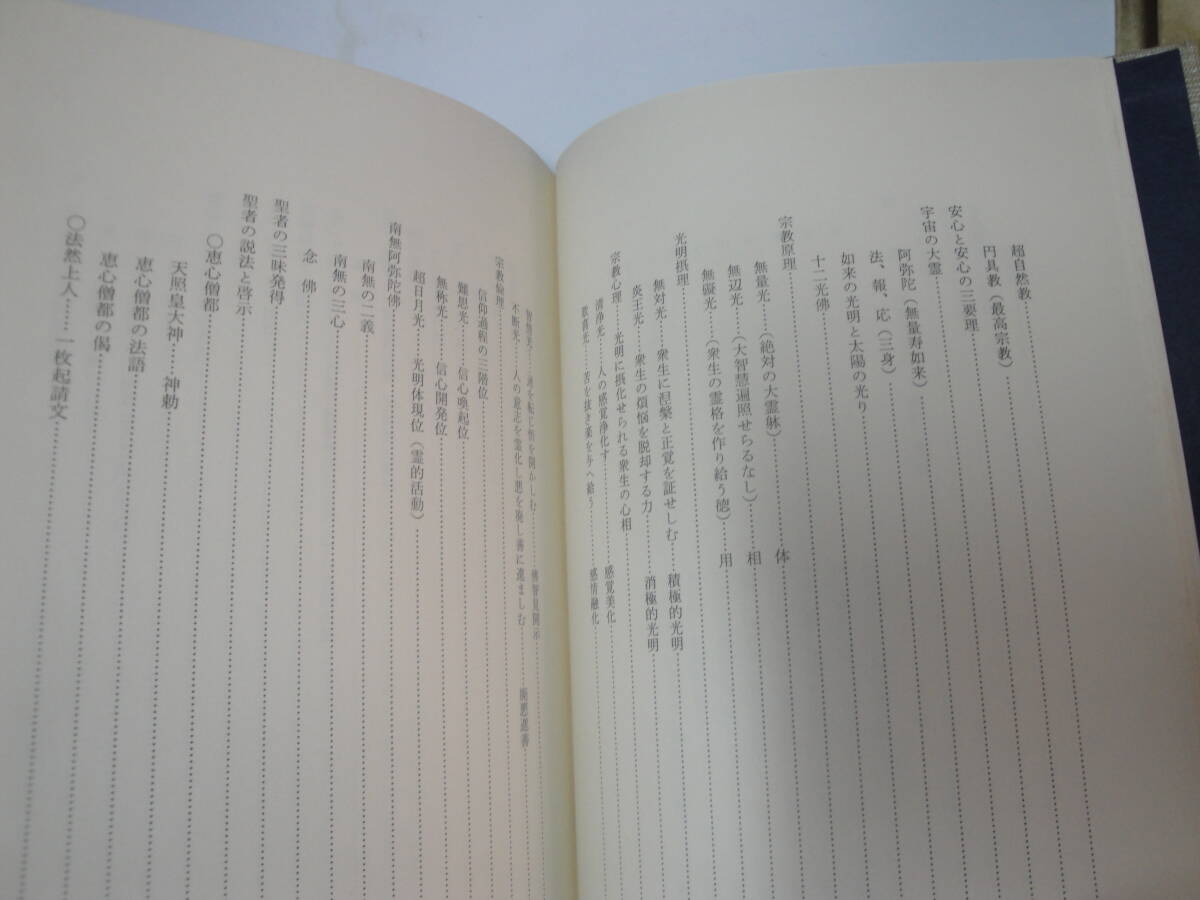 超自然教
円具教（最高宗教）
安心と安心の三要理
宇宙の大霊
阿弥陀（無量寿如来）
法、報、応（三身）
如来の光明と太陽の光り
十二光佛
宗教原理
無量光（絶対の大霊躰）体
無辺光（大智慧遍照せらるなし）相
無礙光（衆生の霊格を作り給う徳）用
光明摂理
無対光 衆生に涅槃と正覚を証せしむ 積極的光明
炎王光 衆生の煩悩を脱却する力 消極的光明
宗教心理 光明に摂化せられる衆生の心相
清浄光 人の感覚浄化す 感覚美化
歓喜光 苦を抜き楽を与へ給う 感情融化
智慧光 迷を転じ悟を開かしむ 佛智見開示
不断光 人の意志を霊化し悪を廃し善に進ましむ
宗教倫理
信仰過程の三階位
難思光 信心喚起位
無称光 信心開発位
超日月光 光明体現位（霊的活動）
南無阿弥陀佛
南無の二義
南無の三心
念佛
聖者の三昧発得
聖者の説法と啓示
〇恵心僧都
天照皇大神……神勅
恵心僧都の法語
恵心僧都の偈
〇法然上人……一枚起請文